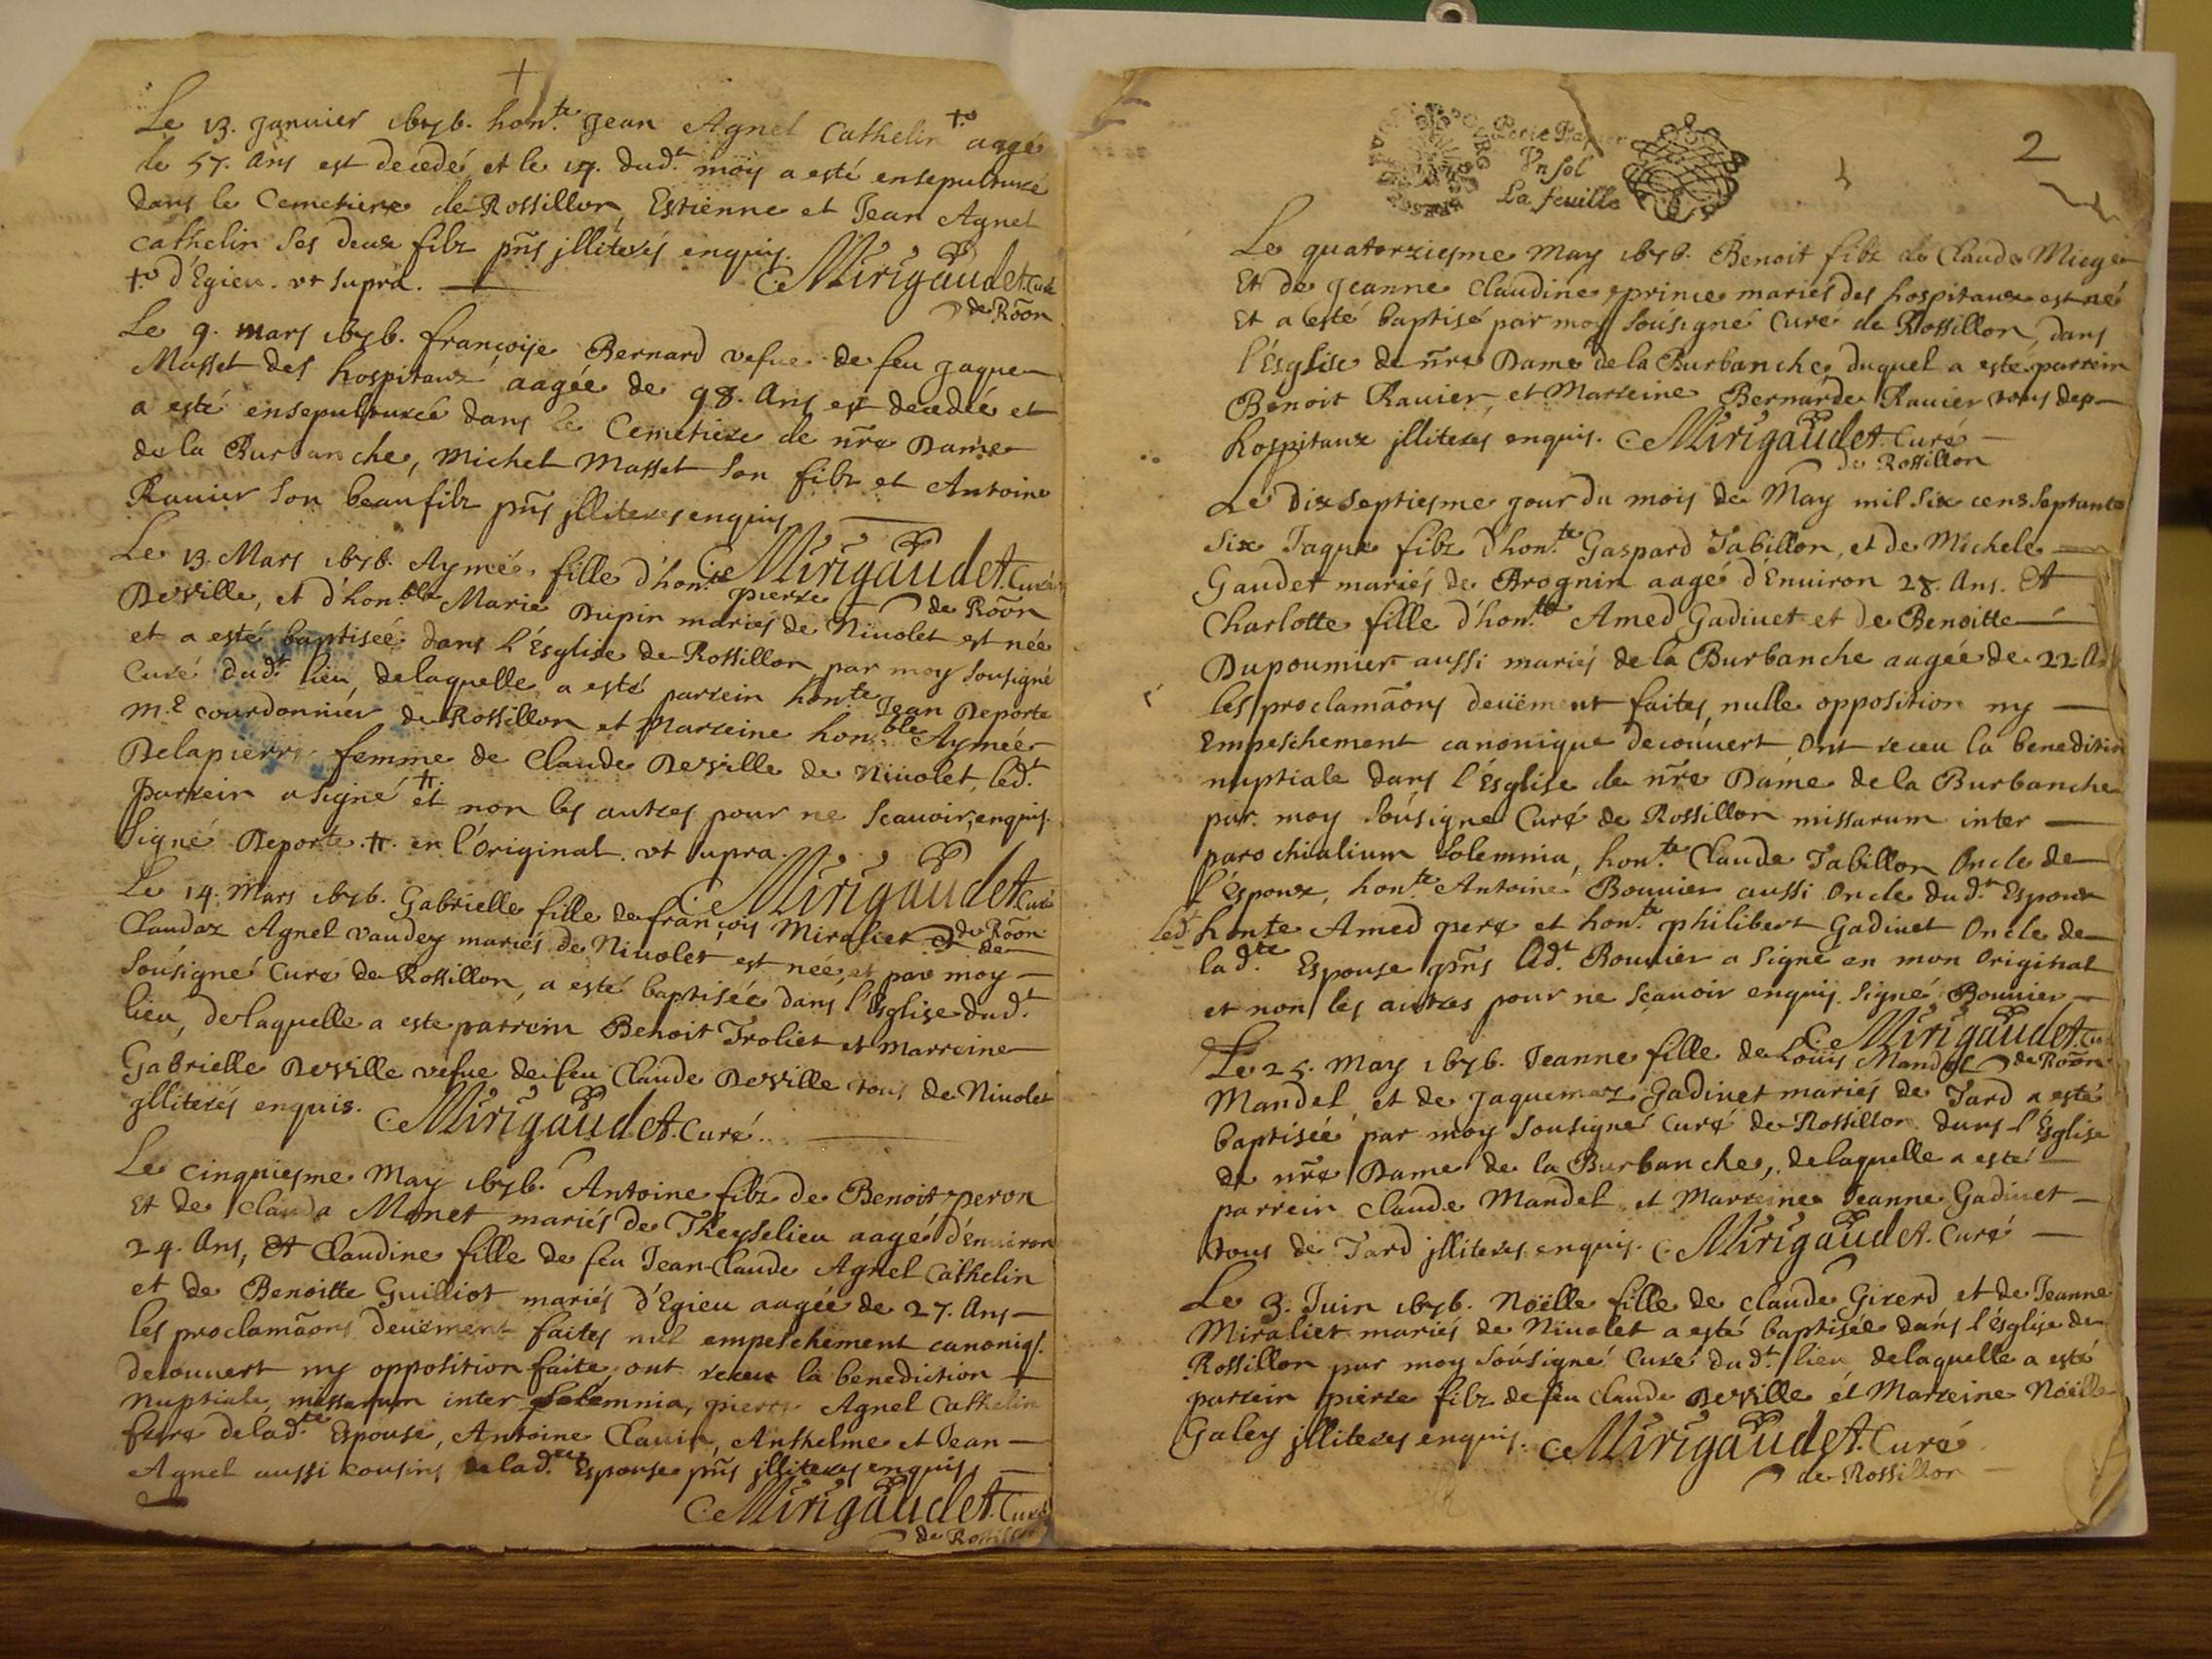 Le 13. Januier 1676. hon.te Jean Agnel Cathelin +.o aagé
de 57. Ans est decedé et le 14. dud.t moys a esté ensepulturé
dans le Cemetiere de Rossillon, Estienne et Jean Agnel
Cathelin ses deux filz pñs jlliterés enquis.
+.o d'Egieu. vt supra. C. Mirigaudet. Curé
de Rõon
Le 9. mars 1676. françoise Bernard vefue de feu Jaques
Masset des hospitaux aagée de 98. Ans est decedée et
a esté ensepulturée dans le Cemetiere de nr̃e Dame
de la Burbanche, Michel Masset son filz et Antoine
Rauier son beaufilz pñs jlliteres enquis
C. Mirigaudet. Curé
de Rõon
Le 13. Mars 1676. Aymée fille d'hon.te pierre
Deville, et d'hon.ble Marie Dupin mariés de Niuolet est née
et a esté baptisée dans l'Esglise de Rossillon par moy sousigné
Curé dud.t lieu, delaquelle a esté parrein hon.te Jean Deporte
m.e courdonnier de Rossillon et Marreine hon.ble Aymée
Delapierre femme de Claude Deville de Niuolet, led.t
parrein a signé # et non les autres pour ne scauoir, enquis.
Signé Deporte. #. en l'Original. vt supra.
C. Mirigaudet. Curé
de Rõon
Le 14. Mars 1676. Gabrielle fille de françois Miraliet & de
Claudaz Agnel vaudey mariés de Niuolet est née, et par moy
sousigné Curé de Rossillon, a esté baptisée dans l'Esglise dud.t
lieu, delaquelle a este parrein Benoit Troliet et Marreine
Gabrielle Deville vefue de feu Claude Deville tous de Niuolet
jlliterés enquis. C. Mirigaudet. Curé.
Le cinquiesme May 1676. Antoine filz de Benoit peron
Et de Clauda Monet mariés de Theyselieu aagé d'énuiron
24. Ans, Et Claudine fille de feu Jean-Claude Agnel Cathelin
et de Benoitte Guilliot mariés d'Egieu aagée de 27. Ans
les proclamãons deuëment faites nul empeschement canoniq.
decouuert ny opposition faite, ont receu la benediction
Nuptiale, missarum inter solemnia, pierre Agnel Cathelin
frere delad.te Espouse, Antoine Clauin, Anthelme et Jean
Agnel aussi cousins delad.te Espouse pñs jlliteres enquis
C. Mirigaudet. Curé
de Rossillon
Petit Papier
Vn sol
La feuille
2
Le quatorziesme May 1676. Benoit filz de Claude Miege
Et de Jeanne Claudine prince mariés des hospitaux est né
Et a esté baptisé par moy sousigné Curé de Rossillon, dans
l'Esglise de nr̃e Dame de la Burbanche, duquel a esté parrein
Benoit Rauier, et Marreine Bernarde Rauier tous des
hospitaux jlliteres enquis. C. Mirigaudet. Curé
de Rossillon
Le Dixseptiesme jour du mois de May mil six cens Septante
Six Jaque filz d'hon.te Gaspard Tabillon, et de Michele
Gaudet mariés de Brognin aagé d'Enuiron 28. Ans. Et
Charlotte fille d'hon.te Amed Gadiuet et de Benoitte
Dupoumier aussi mariés de la Burbanche aagée de 22 A
les proclamãons deuëment faites, nulle opposition ny
Empeschement canonique decouuert Ont receu la benedition
nuptiale dans l'Esglise de nr̃e Dame de la Burbanche
par moy sousigné Curé de Rossillon missarum inter
parochialium solemnia, hon.te Claude Tabillon Oncle de
l'Espoux, hon.te Antoine Bouuier aussi Oncle dud.t Espoux
led.t hon.te Amed pere et hon.te philibert Gadiuet Oncle de
lad.te Espouse pñs led.t Bouuier a signé en mon Original
et non les autres pour ne sçauoir enquis. signé Bouuier
C. Mirigaudet. Cu
de Rõon
Le 25. May 1676. Jeanne fille de Louis Mandel
Mandel, et de Jaquemaz Gadiuet mariés de Tard a esté
baptisée par moy sousigné Curé de Rossillon dans l'Esglise
de nr̃e Dame de la Burbanche, delaquelle a esté
parrein Claude Mandel et Marreine Jeanne Gadiuet
tous de Tard jlliteres enquis. C. Mirigaudet. Curé
Le 3. Juin 1676. Noëlle fille de Claude Girerd et de Jeanne
Miraliet mariés de Niuolet a esté baptisée dans l'Esglise de
Rossillon par moy sousigné Curé dud.t lieu delaquelle a esté
parrein pierre filz de feu Claude Deville et Marreine Noëlle
Galey jlliteres enquis. C. Mirigaudet. Curé
de Rossillon